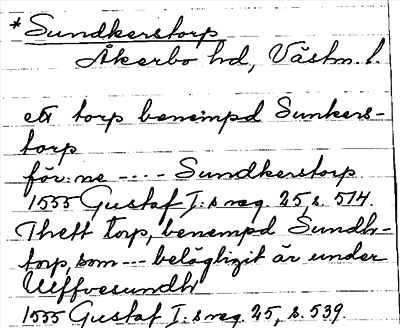 * Sundkerstorp
Åkerbo hd, Västm. l.
ett torp benempd Sunkers-
torp
för:ne ---- Sundkerstorp
1555 Gustaf I:s reg. 25, s. 514.
Thett torp, benempd Sundh-
torp, som --- belägligit är under
Ulffvesundh
1555 Gustaf I:s reg. 25, s. 539.